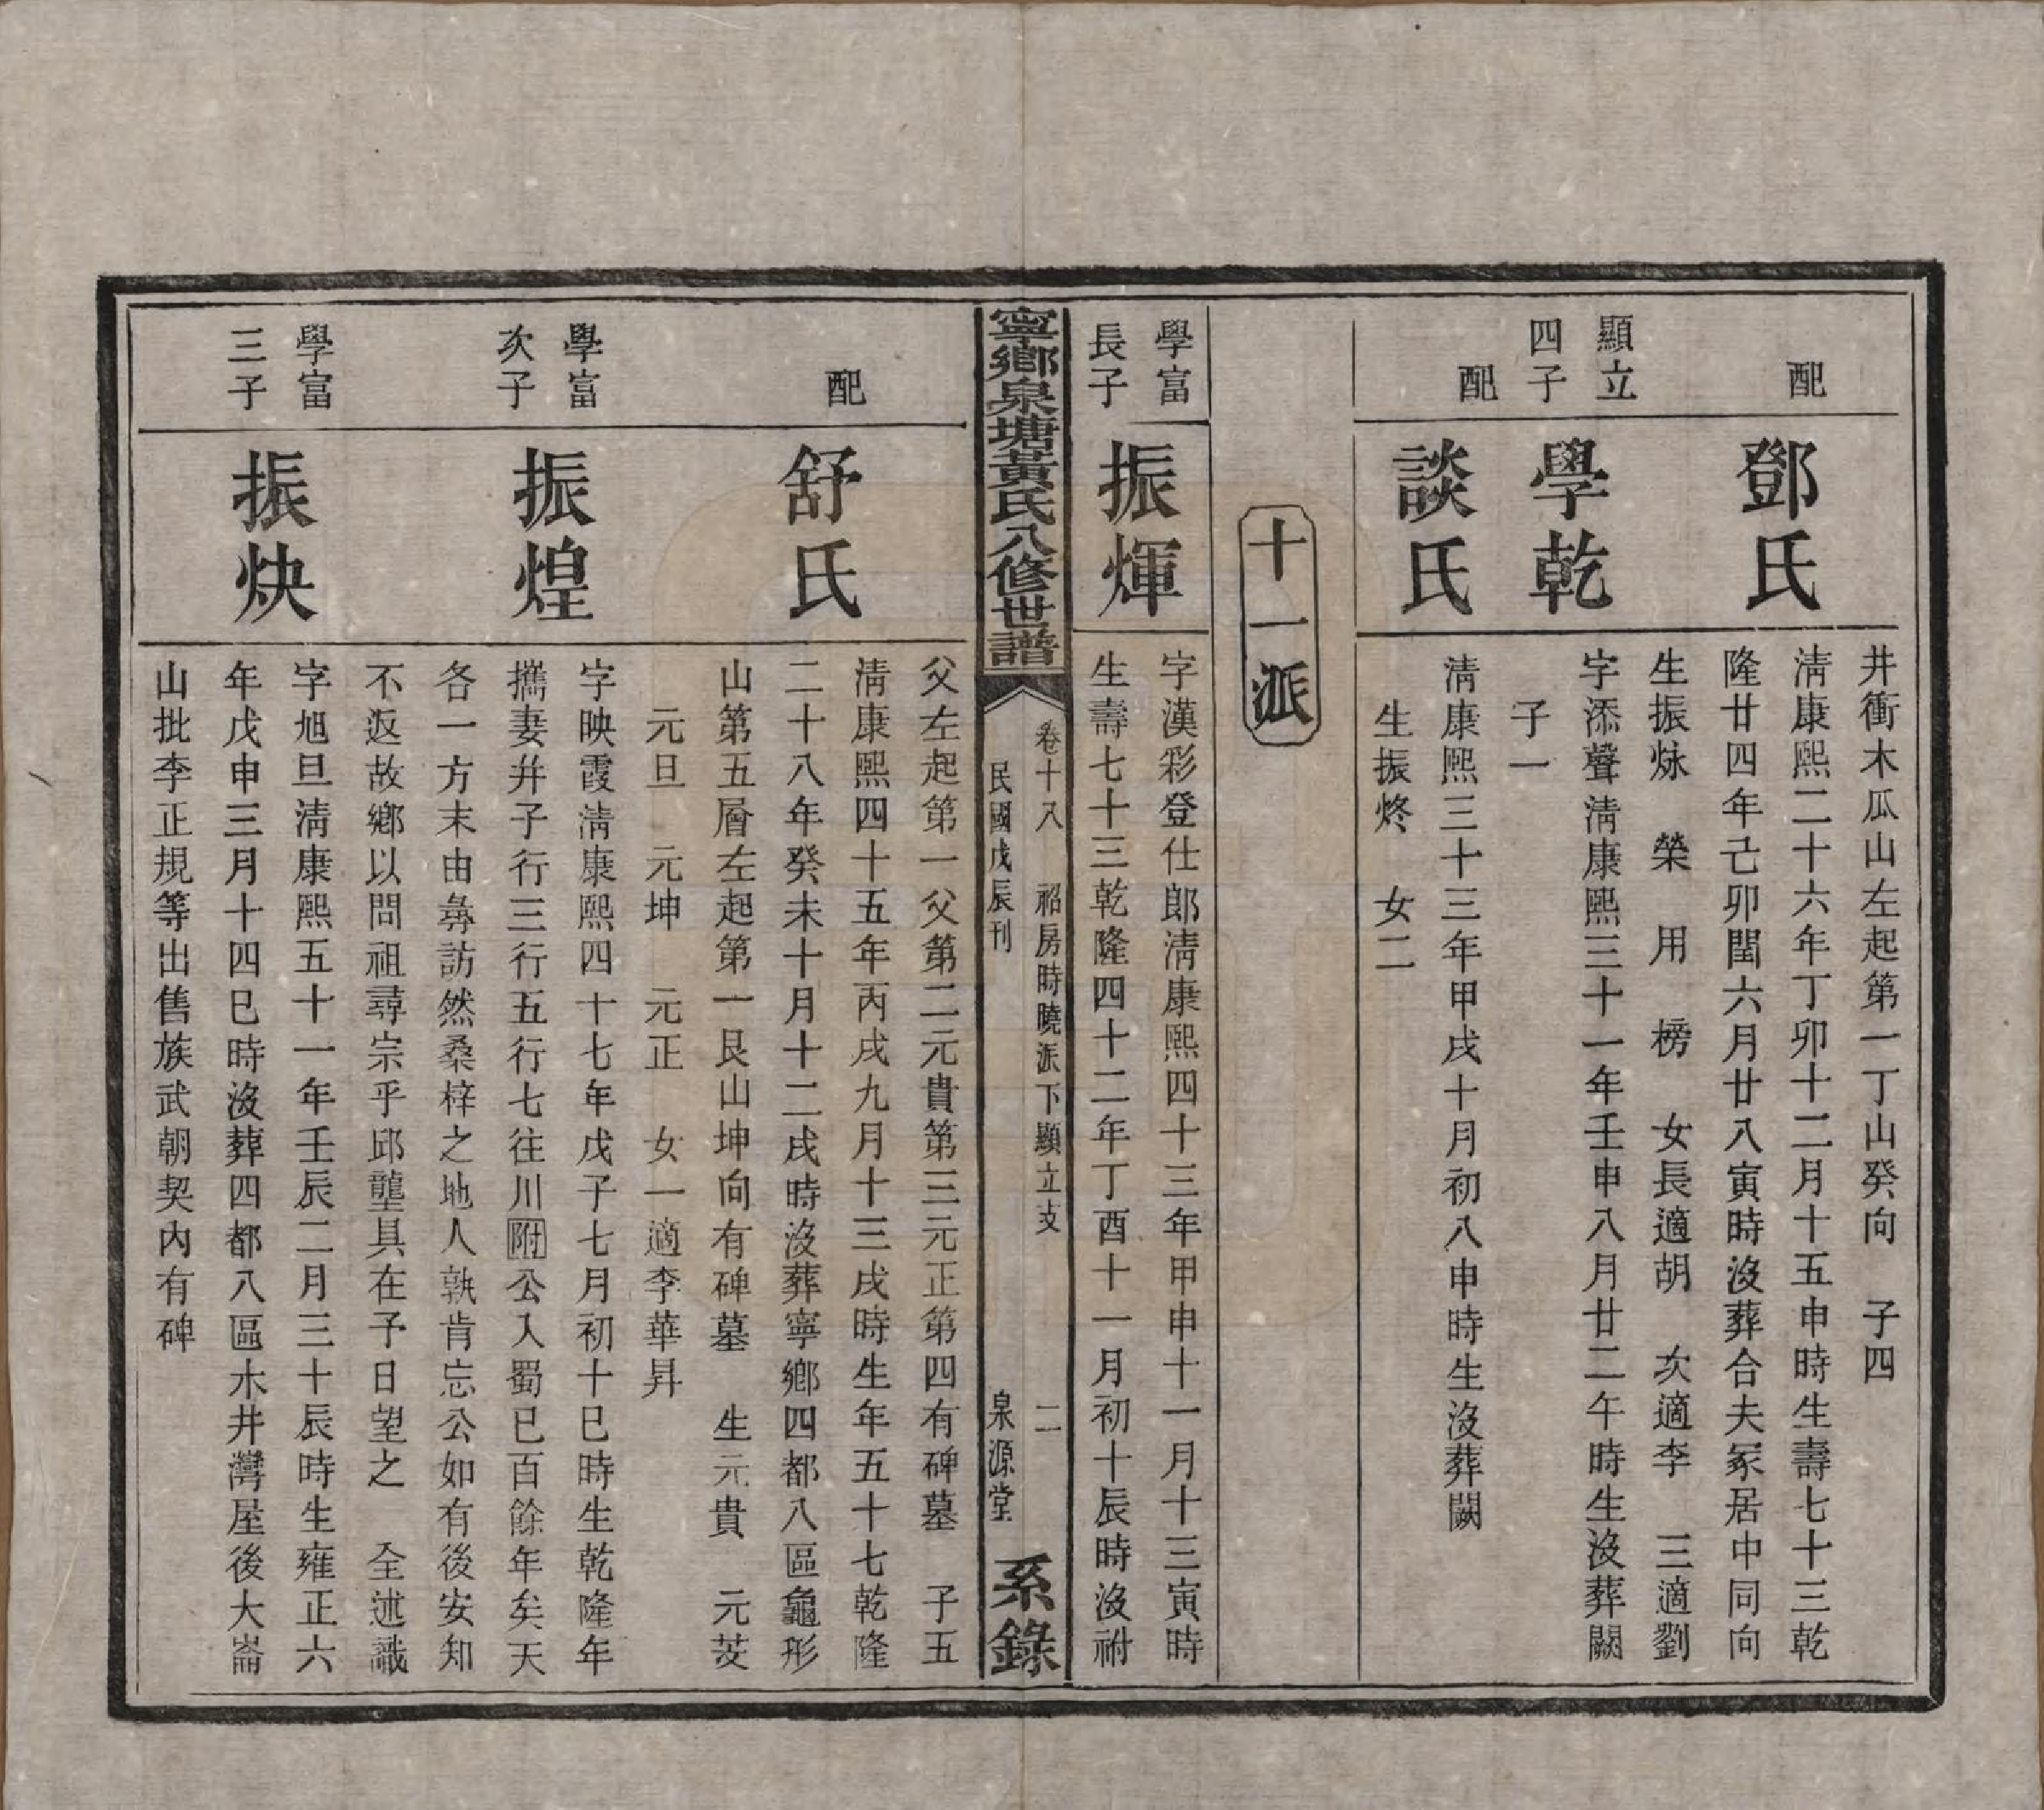 井衝木瓜山左起第一丁山癸向　子四
配
鄧氏
淸康熙二十六年丁卯十二月十五申時生壽七十三乾
隆廿四年己卯閏六月廿八寅時沒葬合夫冢居中同向
生振烣　榮　用　榜　女長適胡　次適李　三適劉
顯立
四子
學乾
字添聲淸康熙三十一年壬申八月廿二午時生沒葬闕
子一
配
談氏
淸康熙三十三年甲戌十月初八申時生沒葬闕
生振炵　女二
十一派
學富
長子
振煇
字漢彩登仕郎淸康熙四十三年甲申十一月十三寅時
生壽七十三乾隆四十二年丁酉十一月初十辰時沒祔
寧鄉泉塘黃氏八修世譜
卷十八　祒房時曉派下顯立支　二
民國戊辰刊　泉源堂
系錄
父左起第一父第二元貴第三元正第四有碑墓　子五
配
舒氏
淸康熙四十五年丙戌九月十三戌時生年五十七乾隆
二十八年癸未十月十二戌時沒葬寧鄉四都八區龜形
山第五層左起第一艮山坤向有碑墓　生元貴　元芨
元旦　元坤　元正　女一適李華昇
學富
次子
振煌
字映霞淸康熙四十七年戊子七月初十巳時生乾隆年
攜妻幷子行三行五行七往川附公入蜀已百餘年矣天
各一方末由彝訪然桑梓之地人孰肯忘公如有後安知
不返故鄉以問祖尋宗乎邱壟具在予日望之　全述識
學富
三子
振炔
字旭旦淸康熙五十一年壬辰二月三十辰時生雍正六
年戊申三月十四巳時沒葬四都八區木井灣屋後大崙
山批李正規等出售族武朝契內有碑